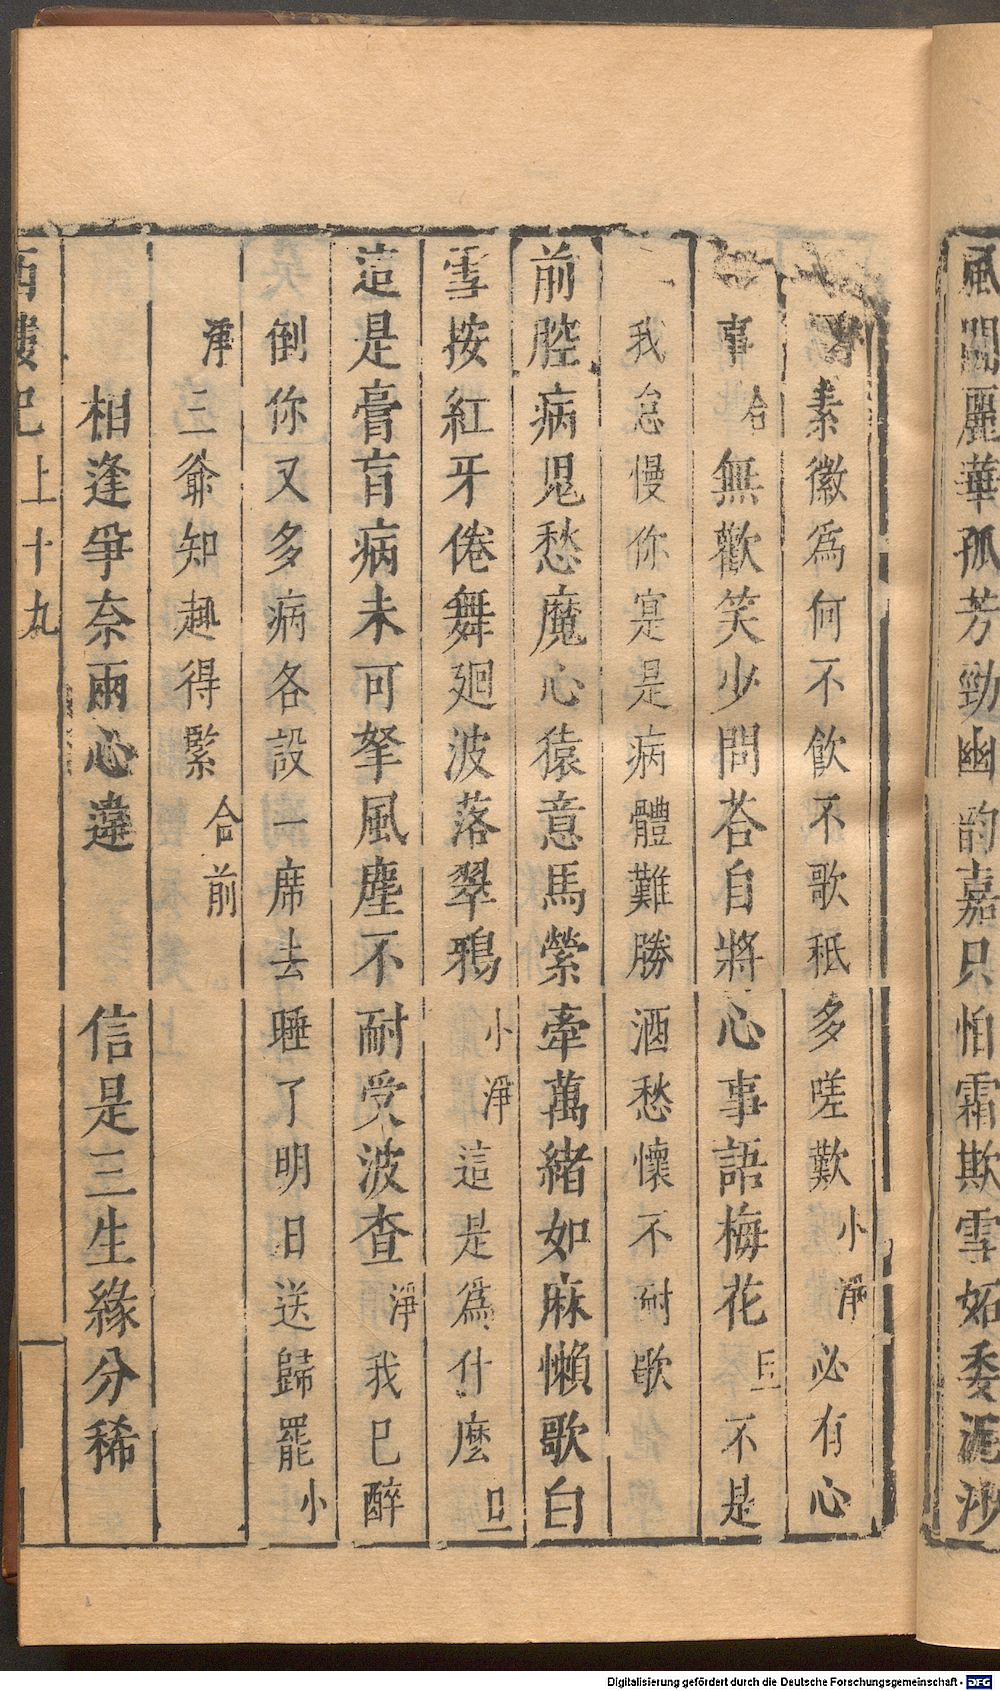 風閣麗華孤芳勁幽韵嘉只怕霜欺雪妬委泥沙
素徽爲何不飲不歌秖多嗟歎小淨必有心
事合無歡笑少問荅自將心事語梅花旦不是
我怠慢你寔是病體難勝酒愁懷不耐歌
前腔病鬼愁魔心猿意馬縈牽萬緒如麻懶歌白
雪按紅牙倦舞廻波落翠鴉小淨這是爲什麽旦
這是膏肓病未可拏風塵不耐受波查淨我已醉
倒你又多病各設一席去睡了明日送歸罷小
淨三爺知趣得緊合前
相逢爭奈兩心違 信是三生緣分稀
西樓記上十九
Digitalisierung gefördert durch die Deutsche Forschungsgemeinschaft - DFG